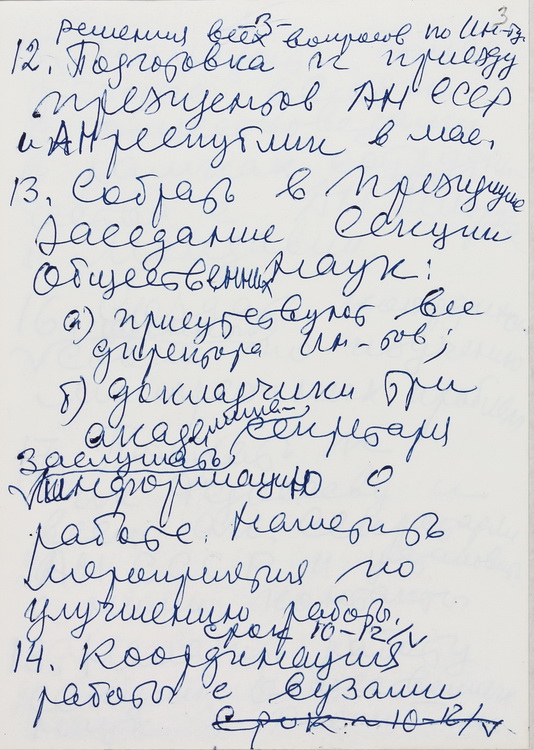 3
-3-
решения всех вопросов по Ин-ту.
12. Подготовка к приезду
президентов АН СССР
и АН республик в мае.
13. Собрать в Президиуме
заседание Секции
Общественных наук:
а) присутствуют все
директора Ин-тов;
б) докладчики три
академика-секретаря
Заслушать
информацию о
работе. Наметить
мероприятия по
улучшению работы.
срок 10-12/V
14. Координация
работы с вузами
Срок: ~ 10-12/V.